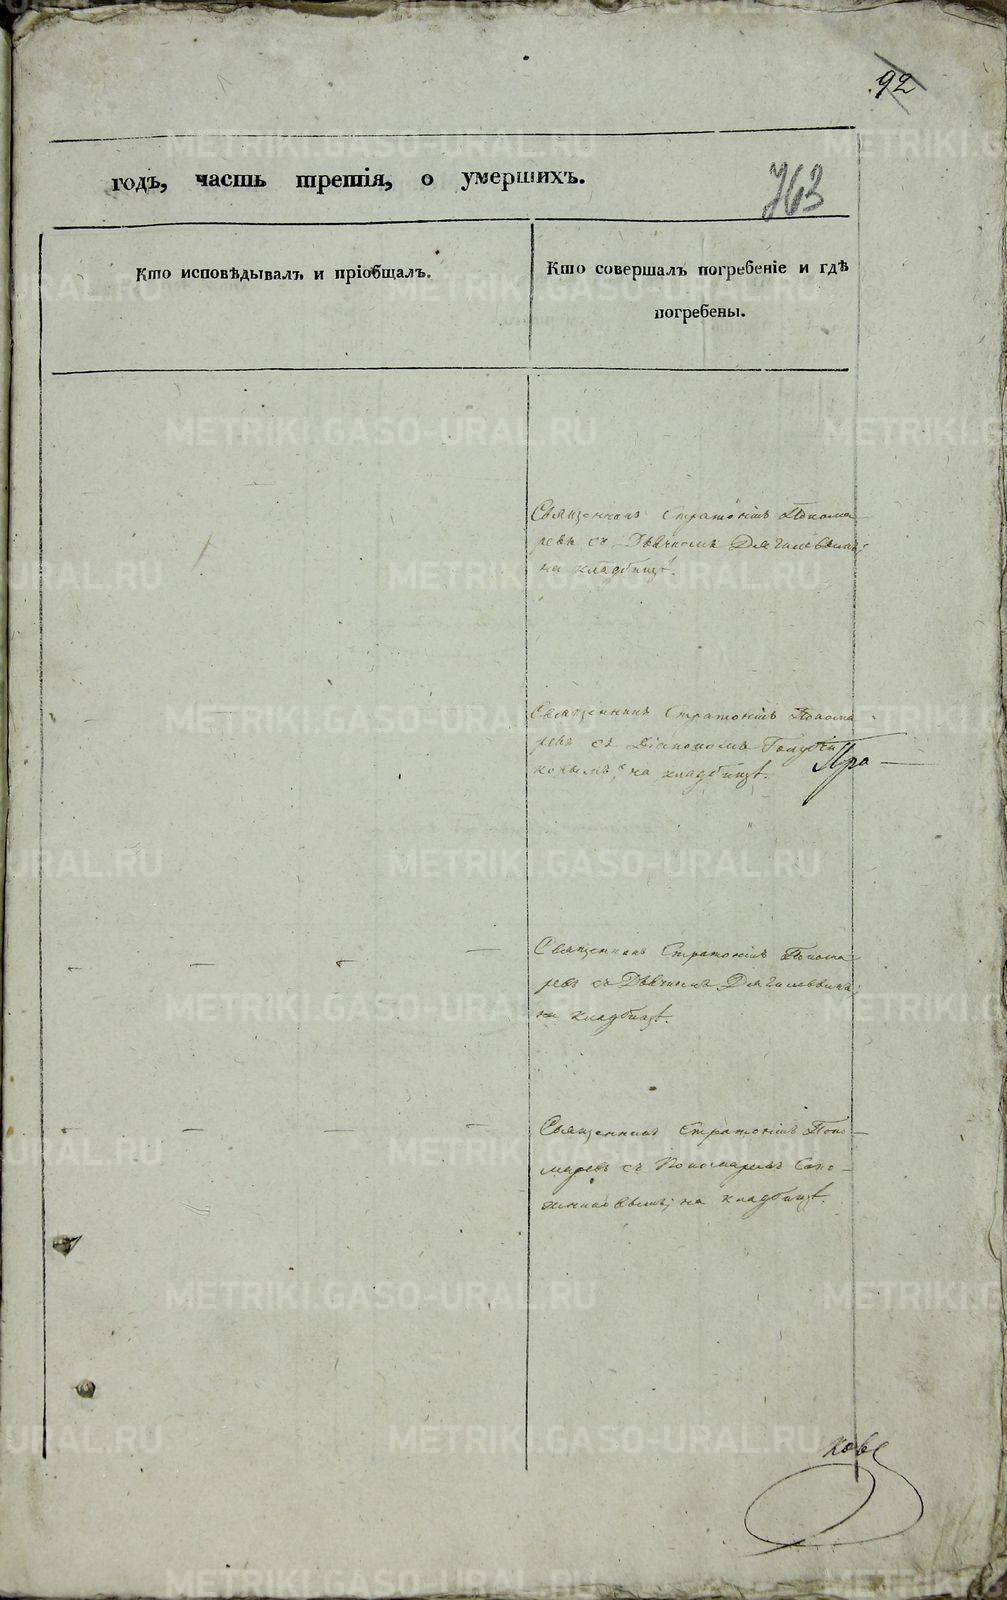 92
годъ, часть третія, о умершихъ.
763
Кто исповѣдывалъ и пріобщалъ.
Кто совершалъ погребеніе и гдѣ
погребены.
Священникъ Стратоникъ Понома
ревъ съ Дьячкомъ Дягилевымъ;
на кладбищѣ.
Священникъ Стратоникъ Понома
ревъ съ Діакономъ Голубчи
ковымъ, на кладбищѣ.
Пра
Священникъ Стратоникъ Понома
ревъ съ Дьячкомъ Дягилевымъ;
на кладбищѣ.
Священникъ Стратоникъ Поно
маревъ съ Пономаремъ
на кладбищѣ.
ковъ
METRIKI.GASO-URAL.RU